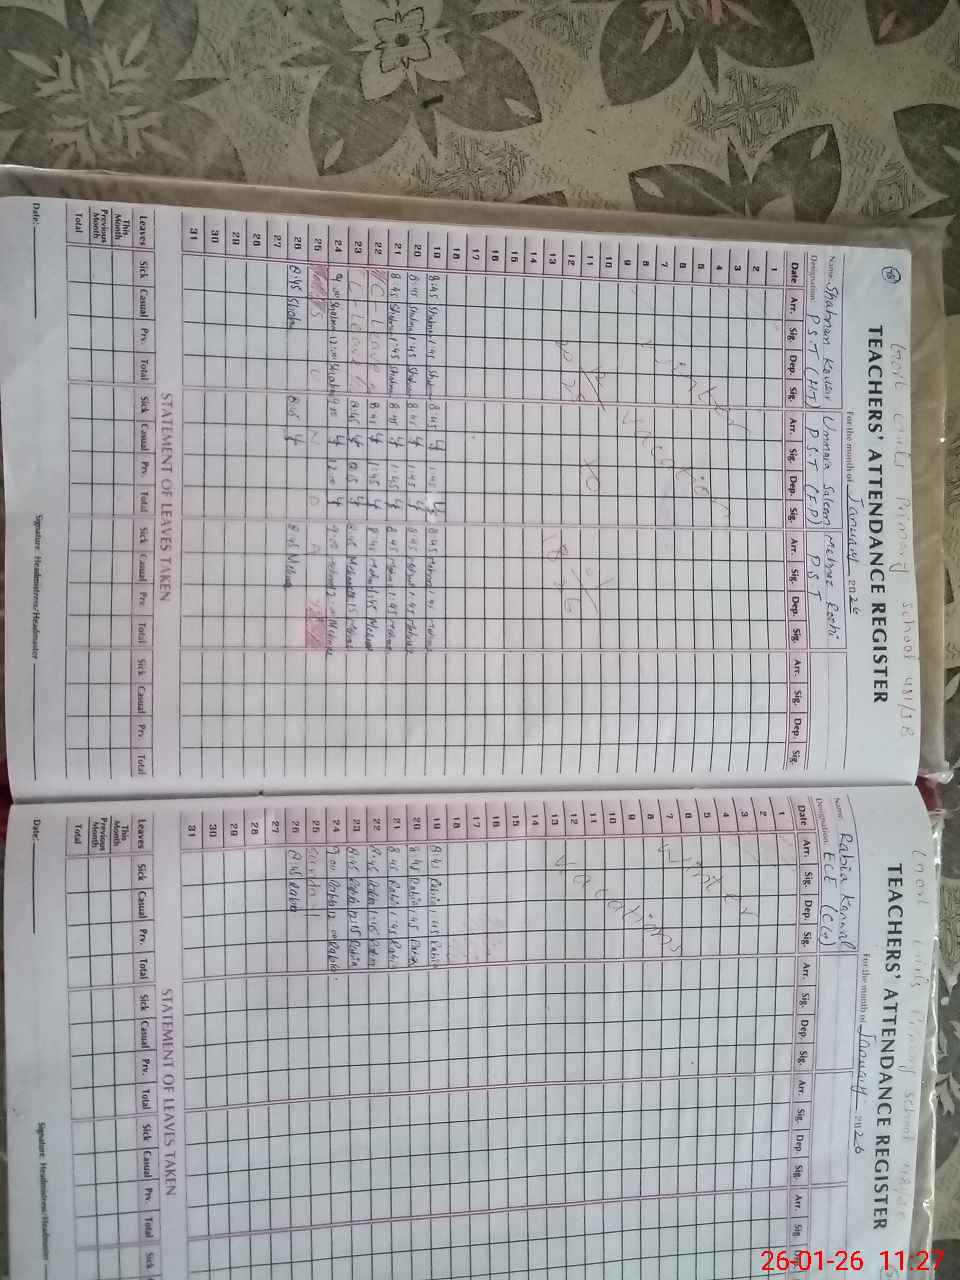 48
Govt Girls Primary School 481/JB
TEACHERS' ATTENDANCE REGISTER
For the month of January 2026
Name: Shabnam Kousar Ummaia Saleem Mehnaz Roohi
Designation: P.S.T (HT) P.S.T (F.P) P.S.T
Date Arr. Sig. Dep. Sig. Arr. Sig. Dep. Sig. Arr. Sig. Dep. Sig. Arr. Sig. Dep. Sig.
1
2
3
4
5
6
7
8
9
10
11
12
13
14
15
16
17
18
Winter Vacation
19 8:45 1:45 8:45 1:45 8:45 1:45
20 8:45 1:45 8:45 1:45 8:45 1:45
21 8:45 1:45 8:45 1:45 8:45 1:45
22 C-Leave 8:45 1:45 8:45 1:45
23 C-Leave 8:45 12:15 8:45 12:15
24 9:00 12:00 9:00 12:00 9:00 12:00
25 S U N D A Y
26 8:45 8:45 8:45
27
28
29
30
31
STATEMENT OF LEAVES TAKEN
Leaves Sick Casual Prv. Total Sick Casual Prv. Total Sick Casual Prv. Total Sick Casual Prv. Total
This Month
Previous Month
Total
Date: Signature: Headmistress/Headmaster
Govt Girls Primary School 481/JB
TEACHERS' ATTENDANCE REGISTER
For the month of January 2026
Name: Rabia Kanwal
Designation: ECE (CG)
Date Arr. Sig. Dep. Sig. Arr. Sig. Dep. Sig. Arr. Sig. Dep. Sig. Arr. Sig. Dep.
1
2
3
4
5
6
7
8
9
10
11
12
13
14
15
16
17
18
Winter Vacations
19 8:45 Rabia 1:45 Rabia
20 8:45 Rabia 1:45 Rabia
21 8:45 Rabia 1:45 Rabia
22 8:45 Rabia 1:45 Rabia
23 8:45 Rabia 12:15 Rabia
24 9:00 Rabia 12:00 Rabia
25 Sunday
26 8:45 Rabia
27
28
29
30
31
STATEMENT OF LEAVES TAKEN
Leaves Sick Casual Prv. Total Sick Casual Prv. Total Sick Casual Prv. Total Sick
This Month
Previous Month
Total
Date: Signature: Headmistress/Headmaster
26-01-26 11:27